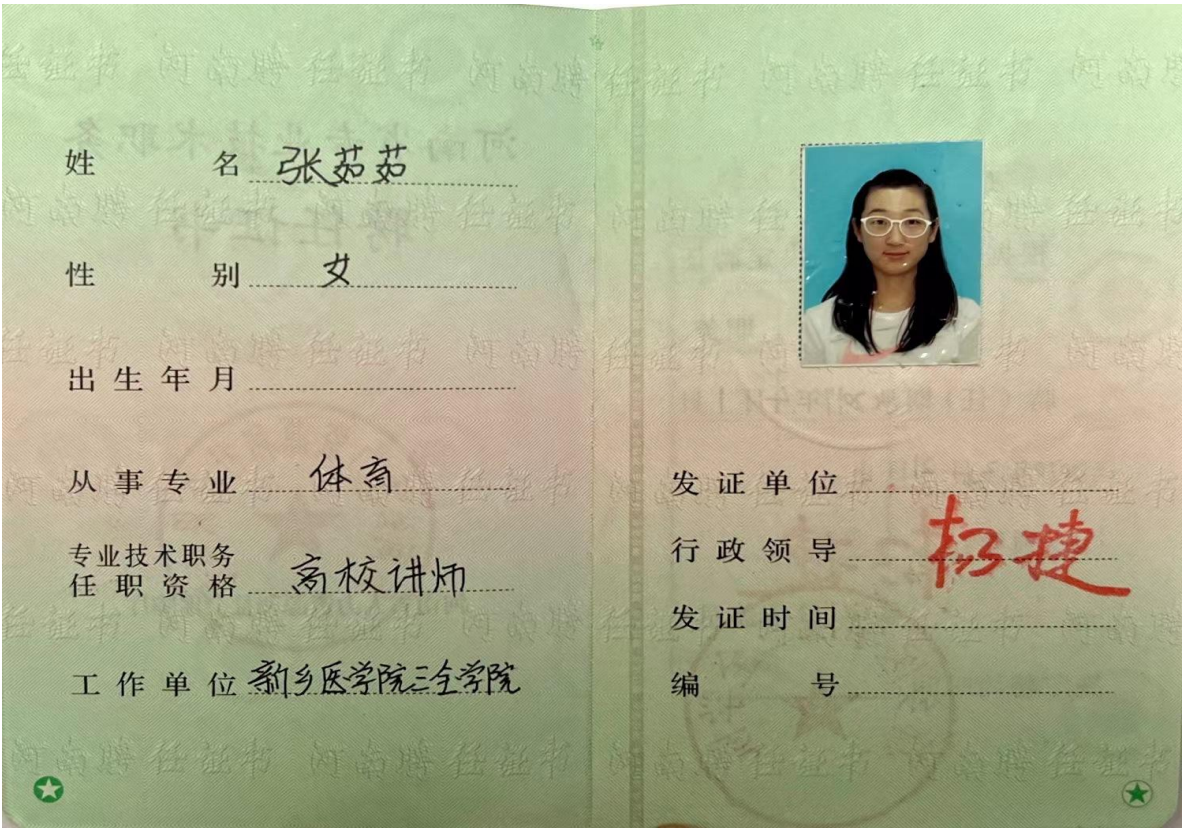 姓名 张茹茹
性别 女
出生年月
从事专业 体育
专业技术职务
任职资格 高校讲师
工作单位 新乡医学院三全学院
发证单位
行政领导
发证时间
编号
河南聘任证书